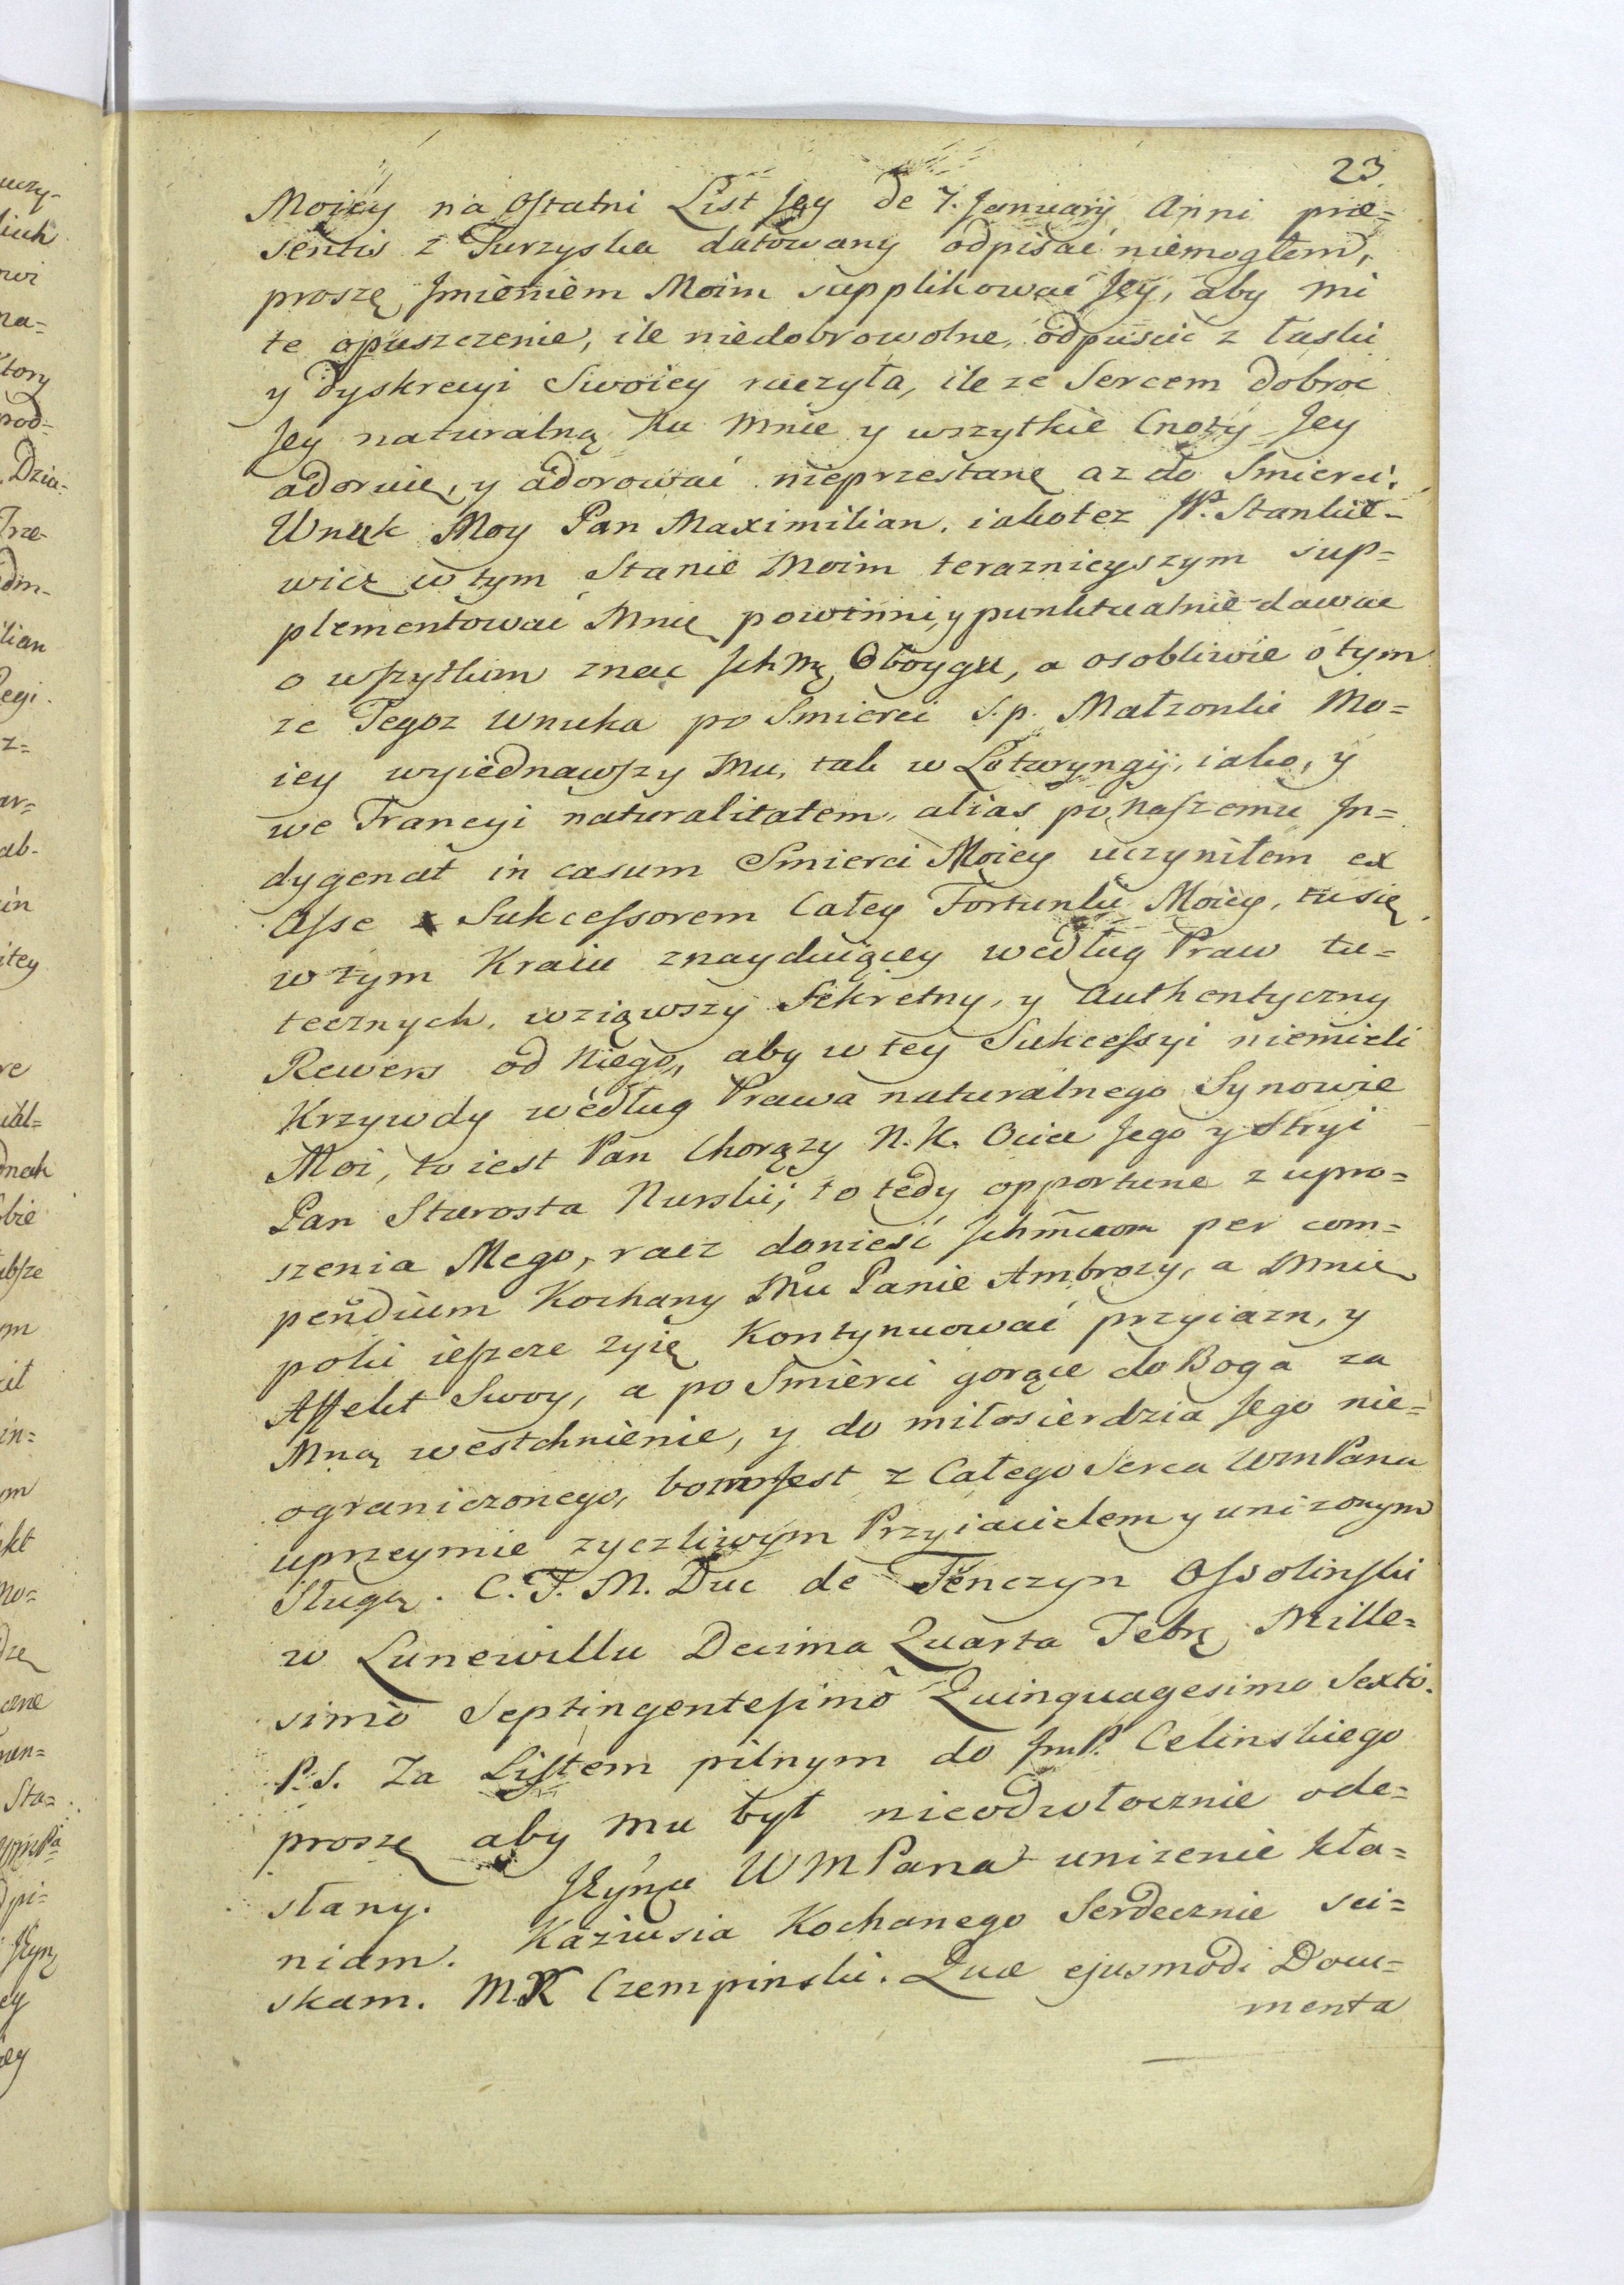 23
Moiey na Ostatni List Jey de 7. Januarij Anni præ=
sentis z Turzyska datowany odpisać niemogłem,
proszę Jmieniem Moim supplikować Jey, aby mi
te opuszczenie, ile niedobrowolne, odpuścić z łaski
y dyskrecyi Swoiey raczyła, ile ze Sercem dobroc
Jey naturalną ku mnie y wszytkie Cnoty Jey
adoruię, y adorować nieprzestanę az do Smierci.
Wnuk Moy Pan Maximilian, iakotez JP. Stankie-
wicz w tym Stanie Moim teraznieyszym sup=
plementować Mnie powinni, y punktualnie dawac
o wszytkim znac Jchmę Oboygu, a osobliwie o tym
ze Tegoz Wnuka po Smierci S.p. Małzonki Mo=
iey wyiednawszy Mu, tak w Lotaryngij, iako, y
we Francyi naturalitatem, alias po Naszemu Jn=
dygenat in casum Smierci Moiey uczyniłem ex
Asse Sukcessorem Całey Fortunki Moiey, tu się
w tym Kraiu znayduiącey według Praw tu=
tecznych, wziąwszy Sekretny, y Authentyczny
Rewers od Niego, aby w tey Sukcessyi niemieli
Krzywdy według Prawa naturalnego Synowie
Moi, to iest Pan Chorązy N. K. Ociec Jego y Stryi
Pan Starosta Nurski; to tedy opportune z upro=
szenia Mego, racz donieść Jchmciom per com=
pendium Kochany Mu Panie Ambrozy, a Mnie
poki ieszcze zyię Kontynuować przyiazn, y
Affekt Swoy, a po Smierci gorące do Boga za
Mną westchnienie, y do miłosierdzia Jego nie=
ograniczonego, bom Jest z Całego Serca WmPana
uprzeymie zyczliwym Przyiacielem y unizonym
Sługą. C. F. M. Duc de Tenczyn Ossolinski
w Lunewillu Decima Quarta Febrę Mille=
simo Septingentesimo Quinquagesimo Sexto.
P.S. Za Listem pilnym do JmP. Celinskiego
proszę aby mu był nieodwłocznie ode=
słany. WMPana unizenie kła=
niam. Kaziusia Kochanego Serdecznie sci=
skam. M.K Czempinski. Quæ ejusmodi Docu=
menta